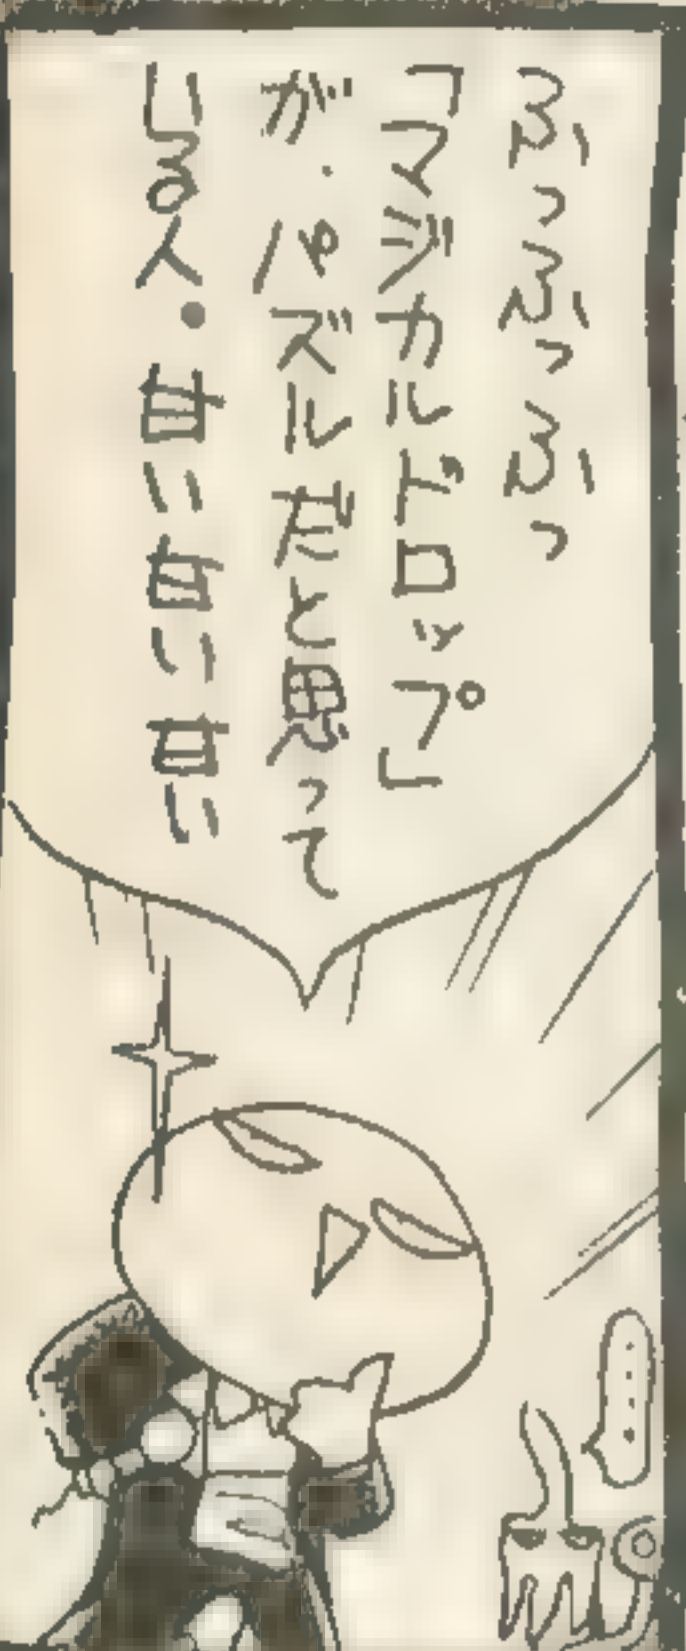 ふっふっふっ
「マジカルドロップ」
が、パズルだと思って
いる人。甘い甘い甘い
……